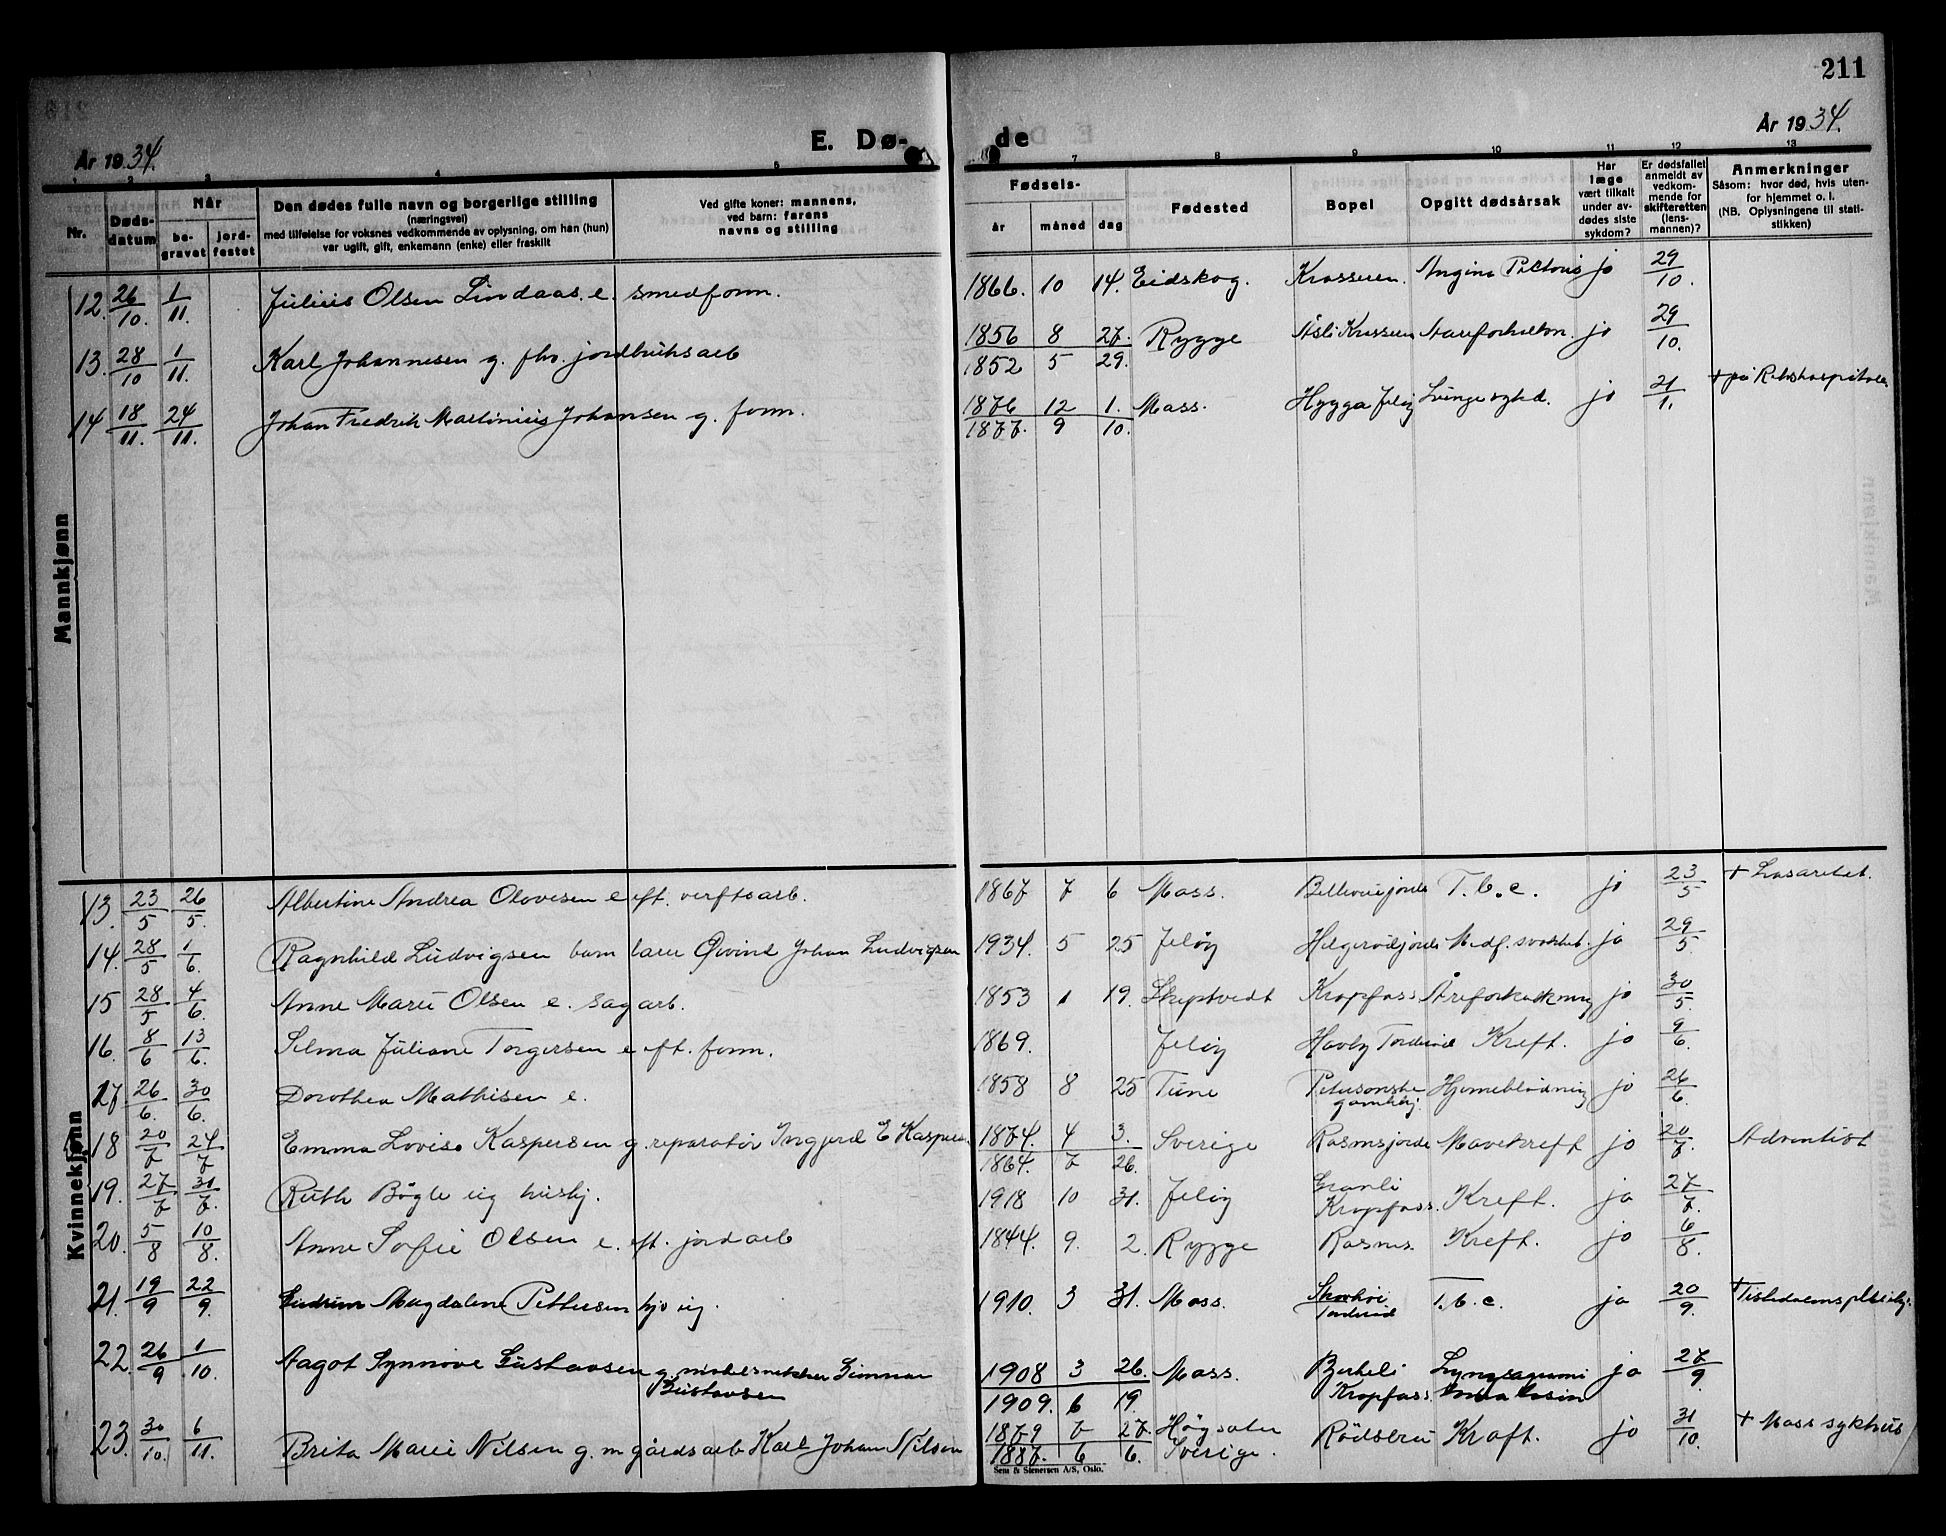 211
År 1934.
E. Dø-
de
År 1934.
1 2 3 4 5 7 8 9 10 11 12 13
Nr.
Døds-
datum
Når
be-
gravet
jord-
festet
Den dødes fulle navn og borgerlige stilling
(næringsvei)
med tilføielse for voksnes vedkommende av oplysning, om han (hun)
var ugift, gift, enkemann (enke) eller fraskilt
Ved gifte koner: mannens,
ved barn: farens
navns og stilling
Fødsels-
år
måned
dag
Fødested
Bopel
Opgitt dødsårsak
Har
læge
vært tilkalt
under av-
dødes siste
sykdom?
Er dødsfallet
anmeldt av
vedkom-
mende for
skifteretten
(lens-
mannen)?
Anmerkninger
Såsom: hvor død, hvis uten-
for hjemmet o. l.
(NB. Oplysningene til stati-
stikken)
Mannkjønn
12. 26/10. 1/11. Julius Olsen Lindaas. e. smedform. 1866. 10 14. Eidskog. Krosseren. Angina Pectoris jo 29/10.
13. 28/10 1/11. Karl Johannesen g. fhv. jordbruksarb 1856 8 27. Rygge Åsli Krosseren jo 29/10.
1852 5 29.
14 18/11. 24/11. Johan Fredrik Martinius Johansen g. form. 1876 12 1. Moss. Hygga Jeløy Lungesykd. jo 21/1. + på Rikshospitalet
1877. 9 10.
Kvinnekjønn
13. 23/5 26/5. Albertine Andrea Olavesen e eft. verftsarb. 1867 7 6 Moss. T.b.c. jo 23/5 + Lasarettet.
14. 28/5 1/6. Ragnhild Ludvigsen barn Øivind Johan Ludvigsen 1934 5 25 Jeløy Helgerødjorde Medf. svakhet. ja 29/5.
15 28/5 4/6. Anne Marie Olsen e. sagarb. 1853 1 19. Skiptvedt Kropfoss Åreforkalkning jo 30/5.
16. 8/6 13/6. Selma Juliane Torgersen e eft. form. 1869. Jeløy Havby Torderød Kreft. jo 9/6.
17 26/6. 30/6. Dorothea Mathisen e. 1858 8 25 Tune Petersonske Hjerneblødning jo 26/6.
gamlehj.
18 20/7 24/7 Emma Lovise Kaspersen g. reparatør E Kaspers. 1874. 4 3. Sverige Rosmsjorde Mavekreft jo 20/7. Adventist
1864. 7 26.
19. 27/7 31/7. Ruth Bøgle ug hushj. 1918 10 31. Jeløy Granli Kreft. ja 27/7.
Kropfoss.
20. 5/8 10/8. Anne Sofie Olsen e. eft. jordarb 1844. 9. 2. Rygge Rosms. Kreft. jo 6/8.
21. 19/9 22/9. Gudrun Magdalene Pettersen hjv ug. 1910. 3 31. Moss. T.b.c. ja 20/9. +
Torderød
22. 26/9 1/10. Aagot Synnøve Gustavsen g. Gunnar 1908 3 26. Moss. Birkeli ja 27/9.
Gustavsen 1909. 6 19. Kropfoss.
23. 30/10. 6/11. Brita Marie Nilsen g. m gårdsarb Karl Johan Nilsen 1879 7 27. Høgsäter Rødsbru Kræft. jo 31/10. + Moss sykhus
1887. 6 6. Sverige.
Sem & Stenersen A/S, Oslo.